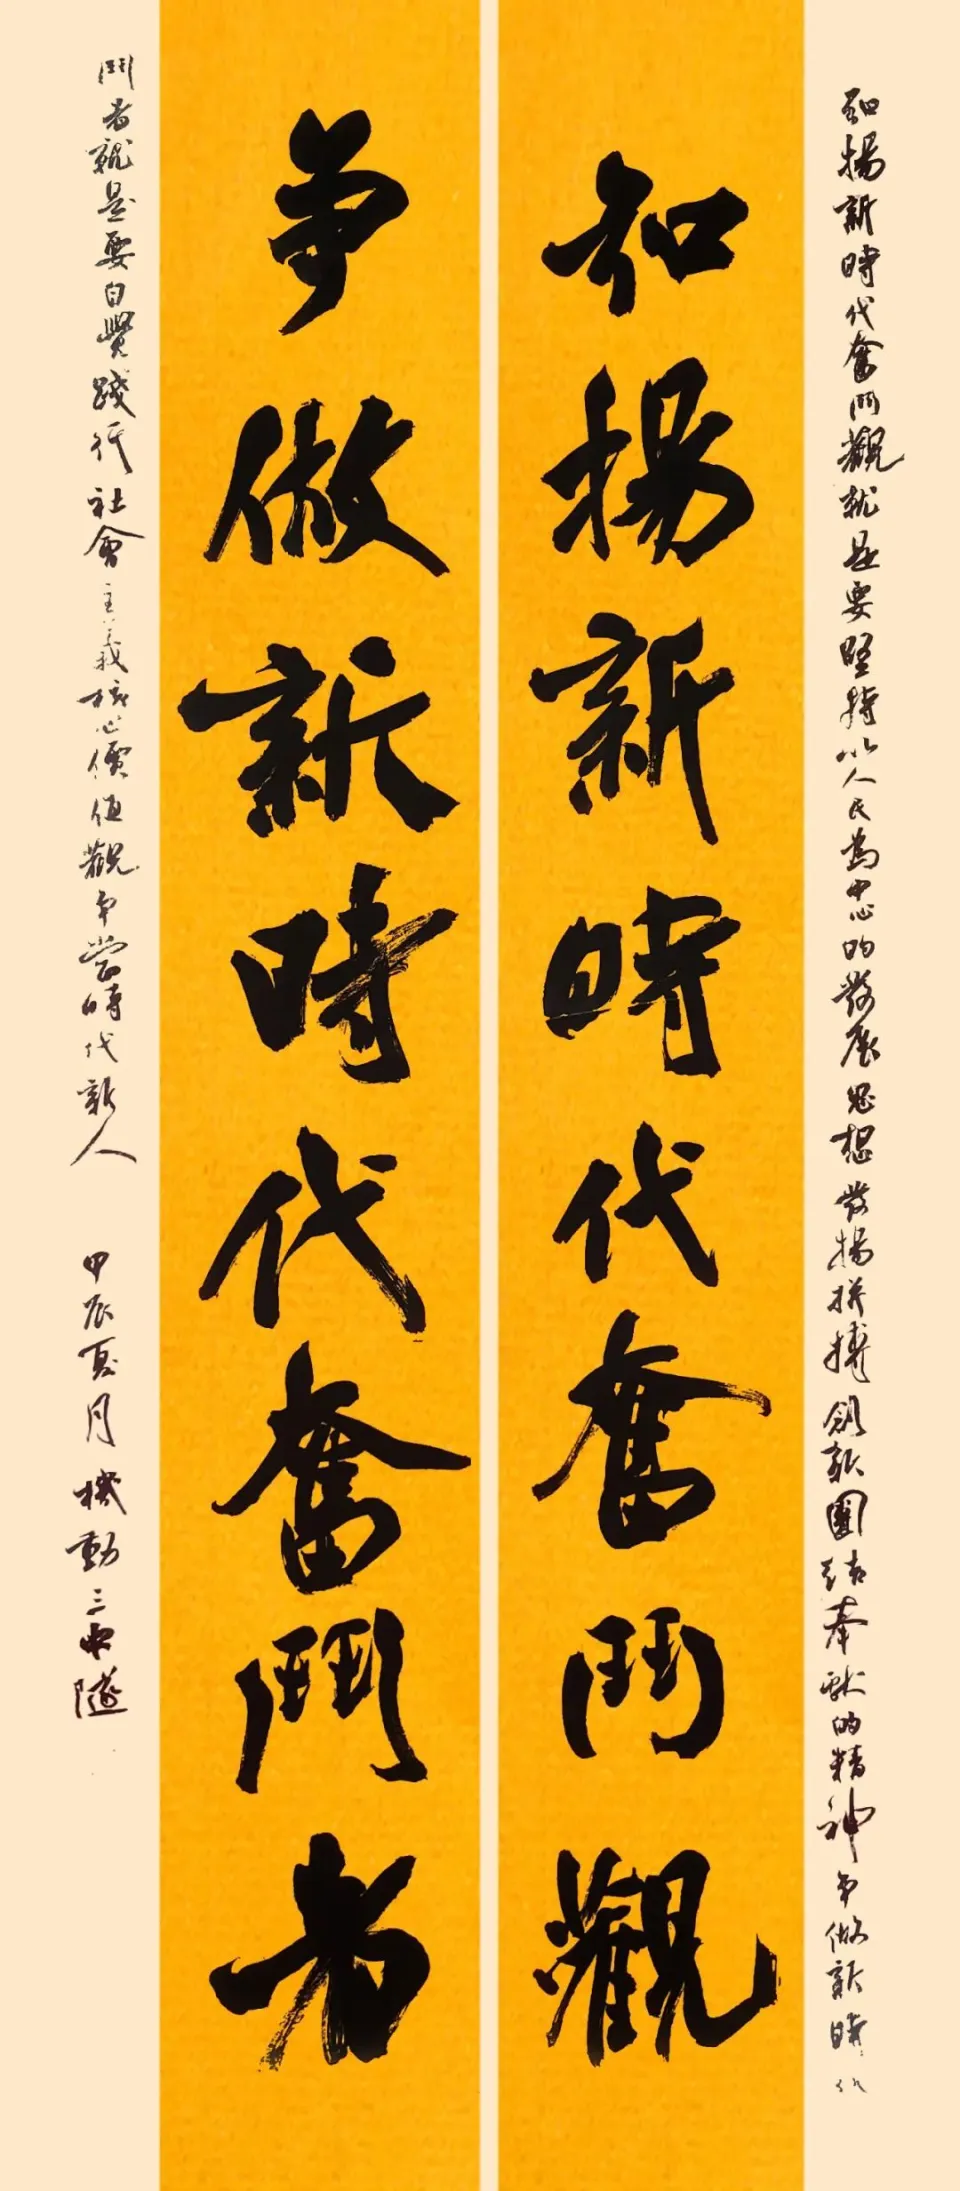 知揚新時代奮鬥觀就是要堅持以人民為中心的發展思想發揚拼搏創新團結奉獻的精神争做新時代
知揚新時代奮鬥觀
争做新時代奮鬥者
鬥者就是要自覺踐行社會主義核心價值觀争當時代新人
甲辰夏月機動三中隊